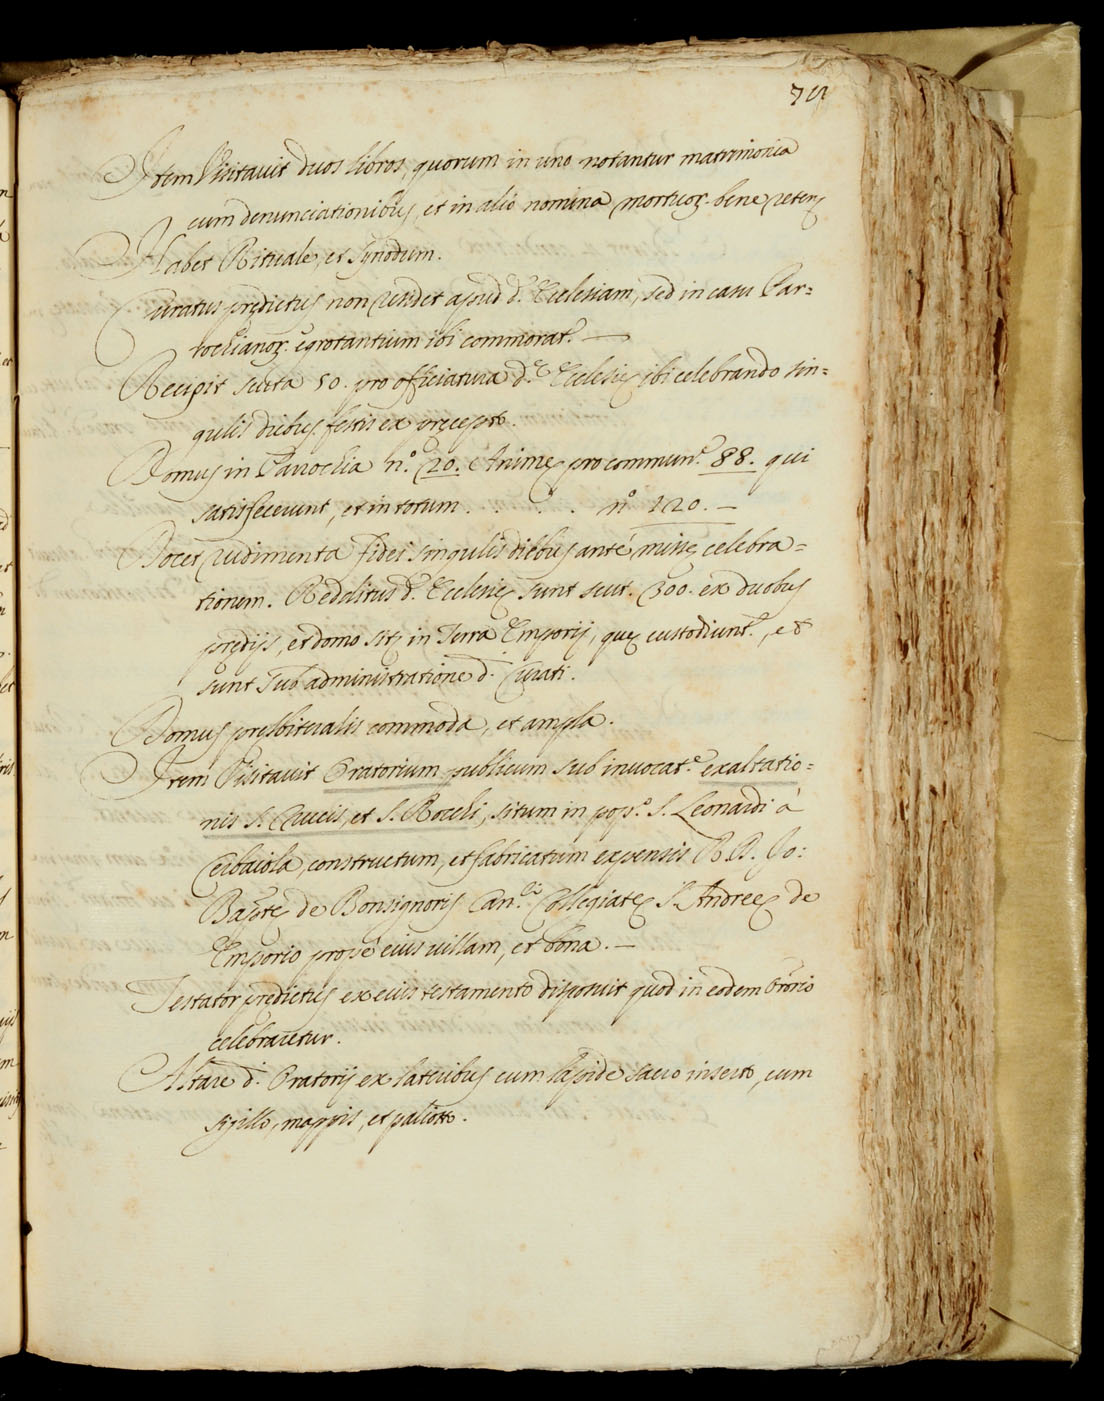 75
Item Visitavit duos libros, quorum in uno notantur matrimonia
cum denunciationibus, et in alio nomina mortuoꝝ. bene retens
Habet Rituale, et Synodum.
Curatus prędictus non residet apud d.ᵃ Ecclesiam, sed in casu Par=
rochianoꝝ. ęgrotantium ibi commorat.ʳ —
Recipit scuta 50. pro officiatura d.ᵉ Ecclesię ibi celebrando sin=
gulis diebus festis ex pręcepto.
Domus in Parrochia n.º 20. Animę pro commun.ᵉ 88. qui
satisfecerunt, et in totum . . . . nº 120. —
Docet rudimenta fidei singulis diebus antè missę celebra=
tionem. Redditus d.ᵉ Ecclesię sunt scut. 300. ex duobus
prędijs, et domo sitę in Terra Emporij, quę custodiunt.ʳ, et
sunt sub administratione d. Curati.
Domus presbiteralis commoda, et ampla.
Item Visitavit Oratorium publicum sub invocat.ᵉ exaltatio=
nis S. Crucis, et S. Rocchi, situm in pop.º S. Leonardi à
Cerbaiola, constructum, et fabricatum expensis R. D. Jo:
Baptę de Bonsignoris Can.ᶜⁱ Collegiatę S. Andreę de
Emporio propè eius villam, et bona. —
Testator prędictus ex eius testamento disposuit quod in eodem Orōrio
celebraretur.
Altare d. Oratorij ex lateribus cum lapide sacro inserto, cum
sigillo, mappis, et paliotto.